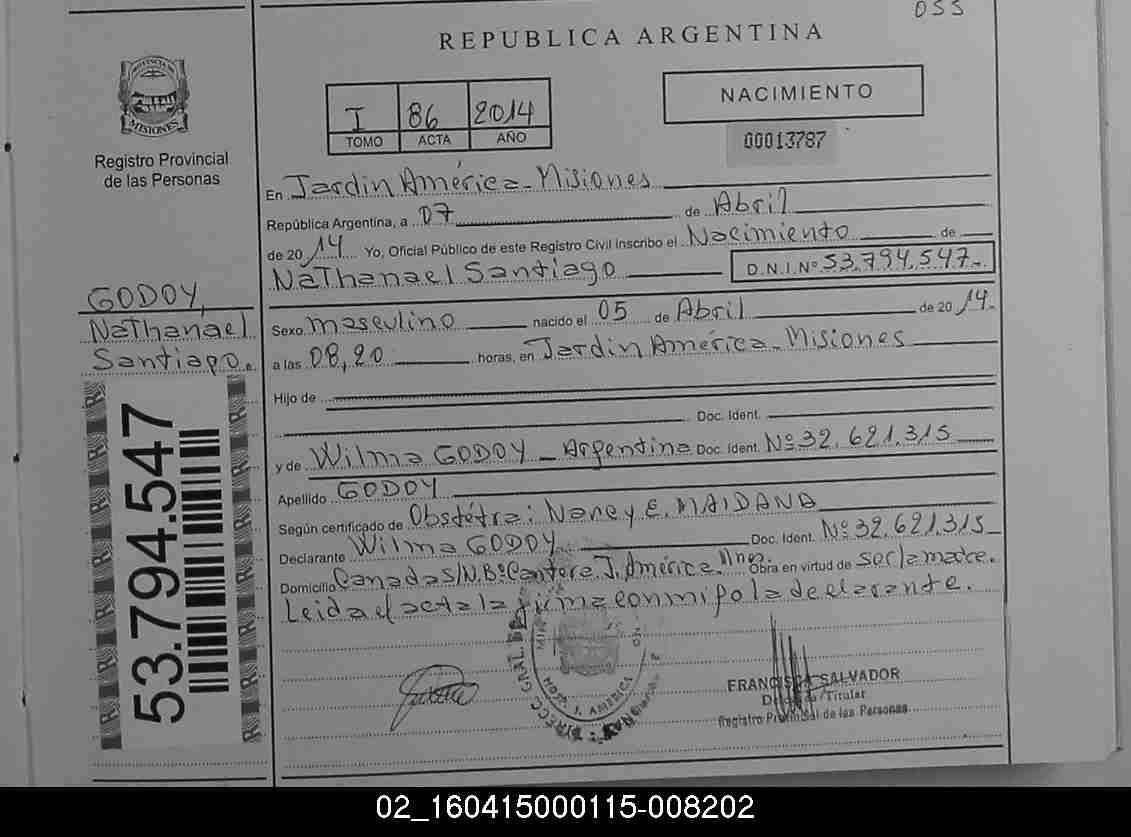 055
REPUBLICA ARGENTINA
PROVINCIA DE
MISIONES
Registro Provincial
de las Personas
I 86 2014
TOMO ACTA AÑO
NACIMIENTO
00013787
En Jardín América - Misiones
República Argentina, a 07 de Abril
de 2014 Yo, Oficial Público de este Registro Civil inscribo el Nacimiento de
Nathanael Santiago D.N.I.Nº 53.794.547-
GODOY,
Nathanael
Santiago.
Sexo masculino nacido el 05 de Abril de 2014.
a las 08,20 horas, en Jardín América - Misiones
Hijo de
Doc. Ident.
y de Wilma GODOY - Argentina Doc. Ident. Nº 32.621.315
Apellido GODOY
Según certificado de Obstétra: Nancy E. MAIDANA
Declarante Wilma GODOY Doc. Ident. Nº 32.621.315
Domicilio Canada S/N Bº Cantera J. América Mnes. Obra en virtud de ser la madre.
Leida el acta la firma conmigo la declarante.
53.794.547
J. AMERICA
FRANCISCA SALVADOR
Titular
Registro Provincial de las Personas
02_160415000115-008202